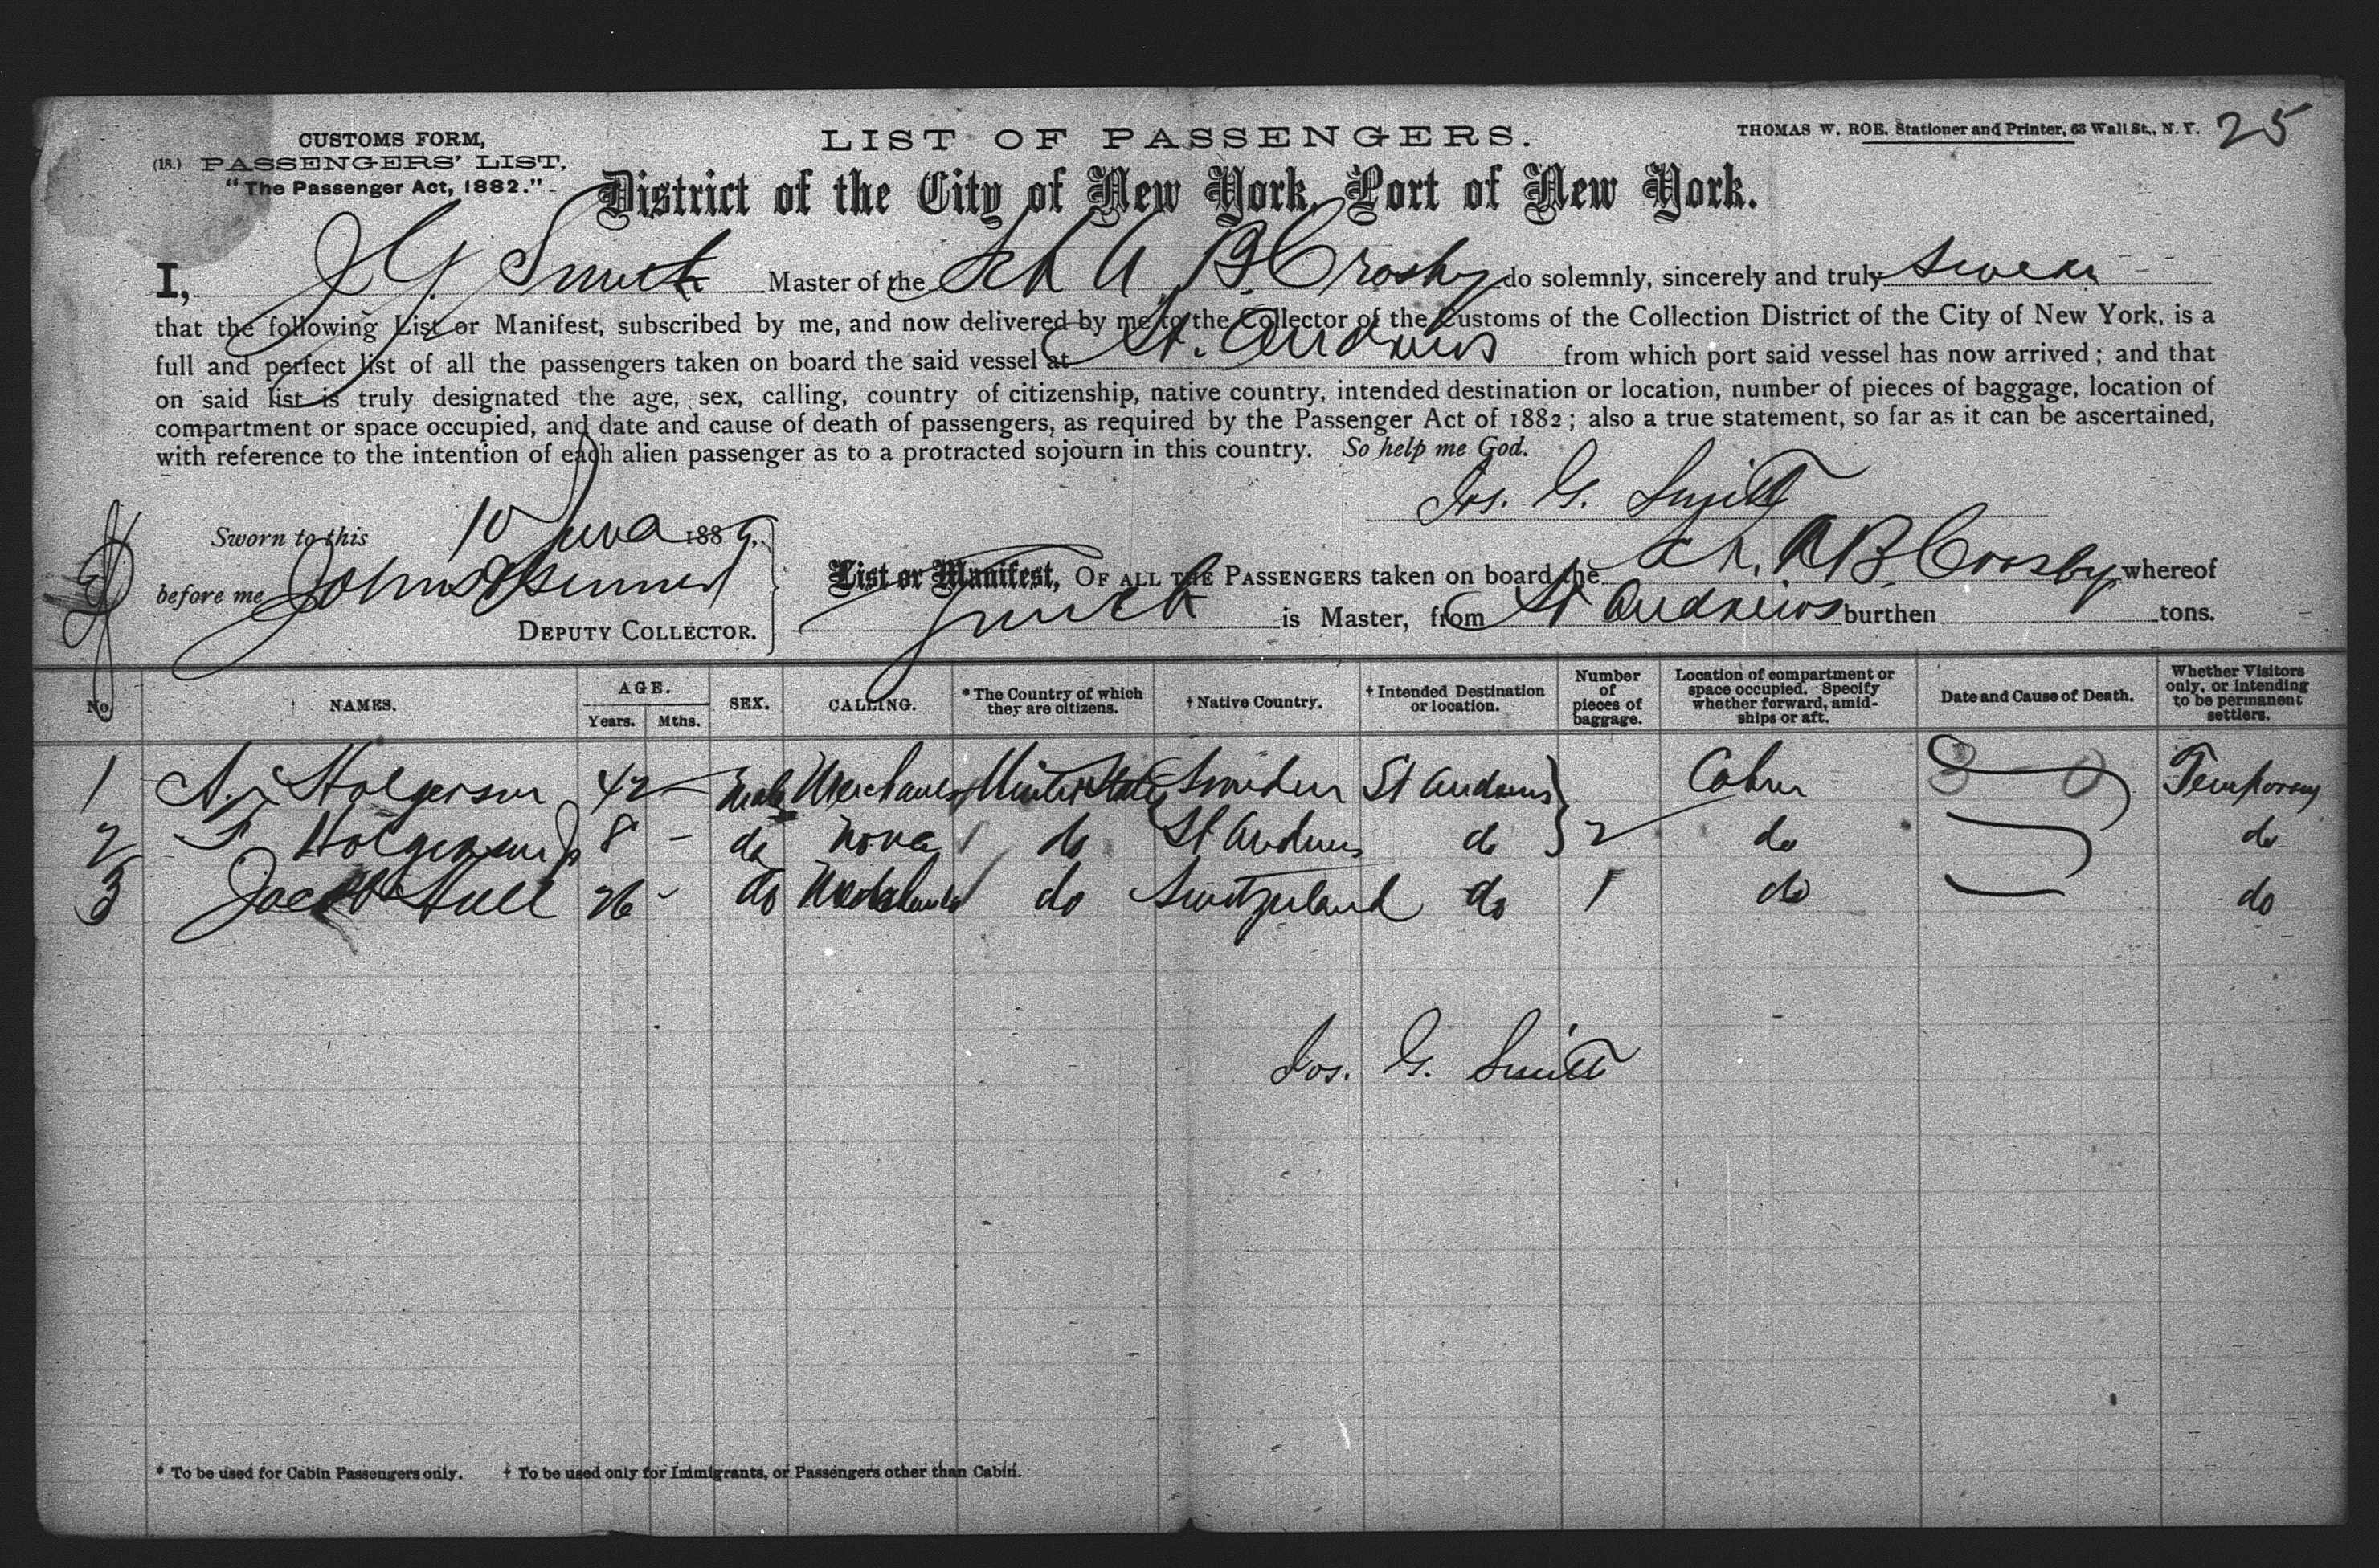 25
CUSTOMS FORM, LIST OF PASSENGERS. THOMAS W. ROE. Stationer and Printer, 63 Wall St., N. Y.
(18.) PASSENGERS' LIST,
"The Passenger Act, 1882."
District of the City of New York, Port of New York.
I, J G Smith Master of the Sch A B Crosby do solemnly, sincerely and truly swear
that the following List or Manifest, subscribed by me, and now delivered by me to the Collector of the Customs of the Collection District of the City of New York, is a
full and perfect list of all the passengers taken on board the said vessel at St. Andrews from which port said vessel has now arrived; and that
on said list is truly designated the age, sex, calling, country of citizenship, native country, intended destination or location, number of pieces of baggage, location of
compartment or space occupied, and date and cause of death of passengers, as required by the Passenger Act of 1882; also a true statement, so far as it can be ascertained,
with reference to the intention of each alien passenger as to a protracted sojourn in this country. So help me God.
Jos. G. Smith
Sworn to this 10 1889.
before me John
DEPUTY COLLECTOR.
List or Manifest, OF ALL THE PASSENGERS taken on board the Sch. A B. Crosby whereof
Smith is Master, from St Andrews burthen tons.
No. NAMES. AGE. Years. Mths. SEX. CALLING. * The Country of which they are citizens. † Native Country. † Intended Destination or location. Number of pieces of baggage. Location of compartment or space occupied. Specify whether forward, amidships or aft. Date and Cause of Death. Whether Visitors only, or intending to be permanent settlers.
1 A. Holgerson 42 – Male Merchant United States Sweden St Andrews Cabin Temporary
2 F Holgerson 8 – do None do St Andrews do 2 do do
3 Jacob Hull 26 – do do Switzerland do 1 do do
Jos. G. Smith
* To be used for Cabin Passengers only. † To be used only for Immigrants, or Passengers other than Cabin.